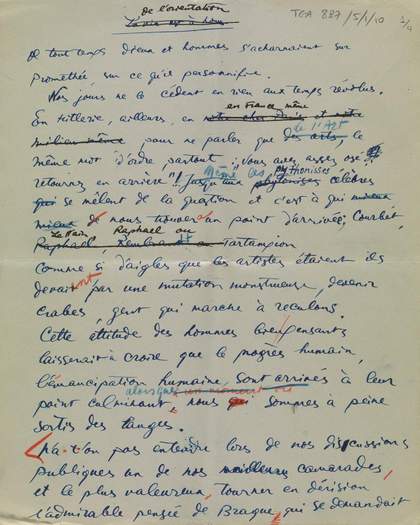 de l'orientation
TGA 887/5/1/10
1/9
De tout temps dieux et hommes s'acharnaient sur
Prométhée, sur ce qu'il personnifie.
Nos jours ne le cèdent en rien aux temps révolus.
en France même
En Hitlerie, ailleurs, en notre cher Paris et notre
milieu même, pour ne parler que des arts, le
de l'Art
même mot d'ordre partout : "Vous avez assez osé !
Même les pythonisses
retournez en arrière" ! Jusqu'aux célèbres
qui se mêlent de la question et c'est à qui mieux
mieux de nous trouver un point d'arrivée ; Courbet,
Le Nain, Raphael ou
Raphael, Rembrandt ou Tartampion
comme si d'aigles que les artistes étaient ils
devaient par une mutation monstrueuse, devenir
crabes, gent qui marche à reculons.
Cette attitude des hommes bien pensants
laisserait à croire que le progrès humain,
l'émancipation humaine, sont arrivés à leur
alors que
point culminant, nous qui sommes à peine
sortis des langes.
N'a-t-on pas entendu lors de nos discussions
publiques un de nos meilleurs camarades,
et le plus valeureux, tourner en dérision
l'admirable pensée de Braque, qui se demandait